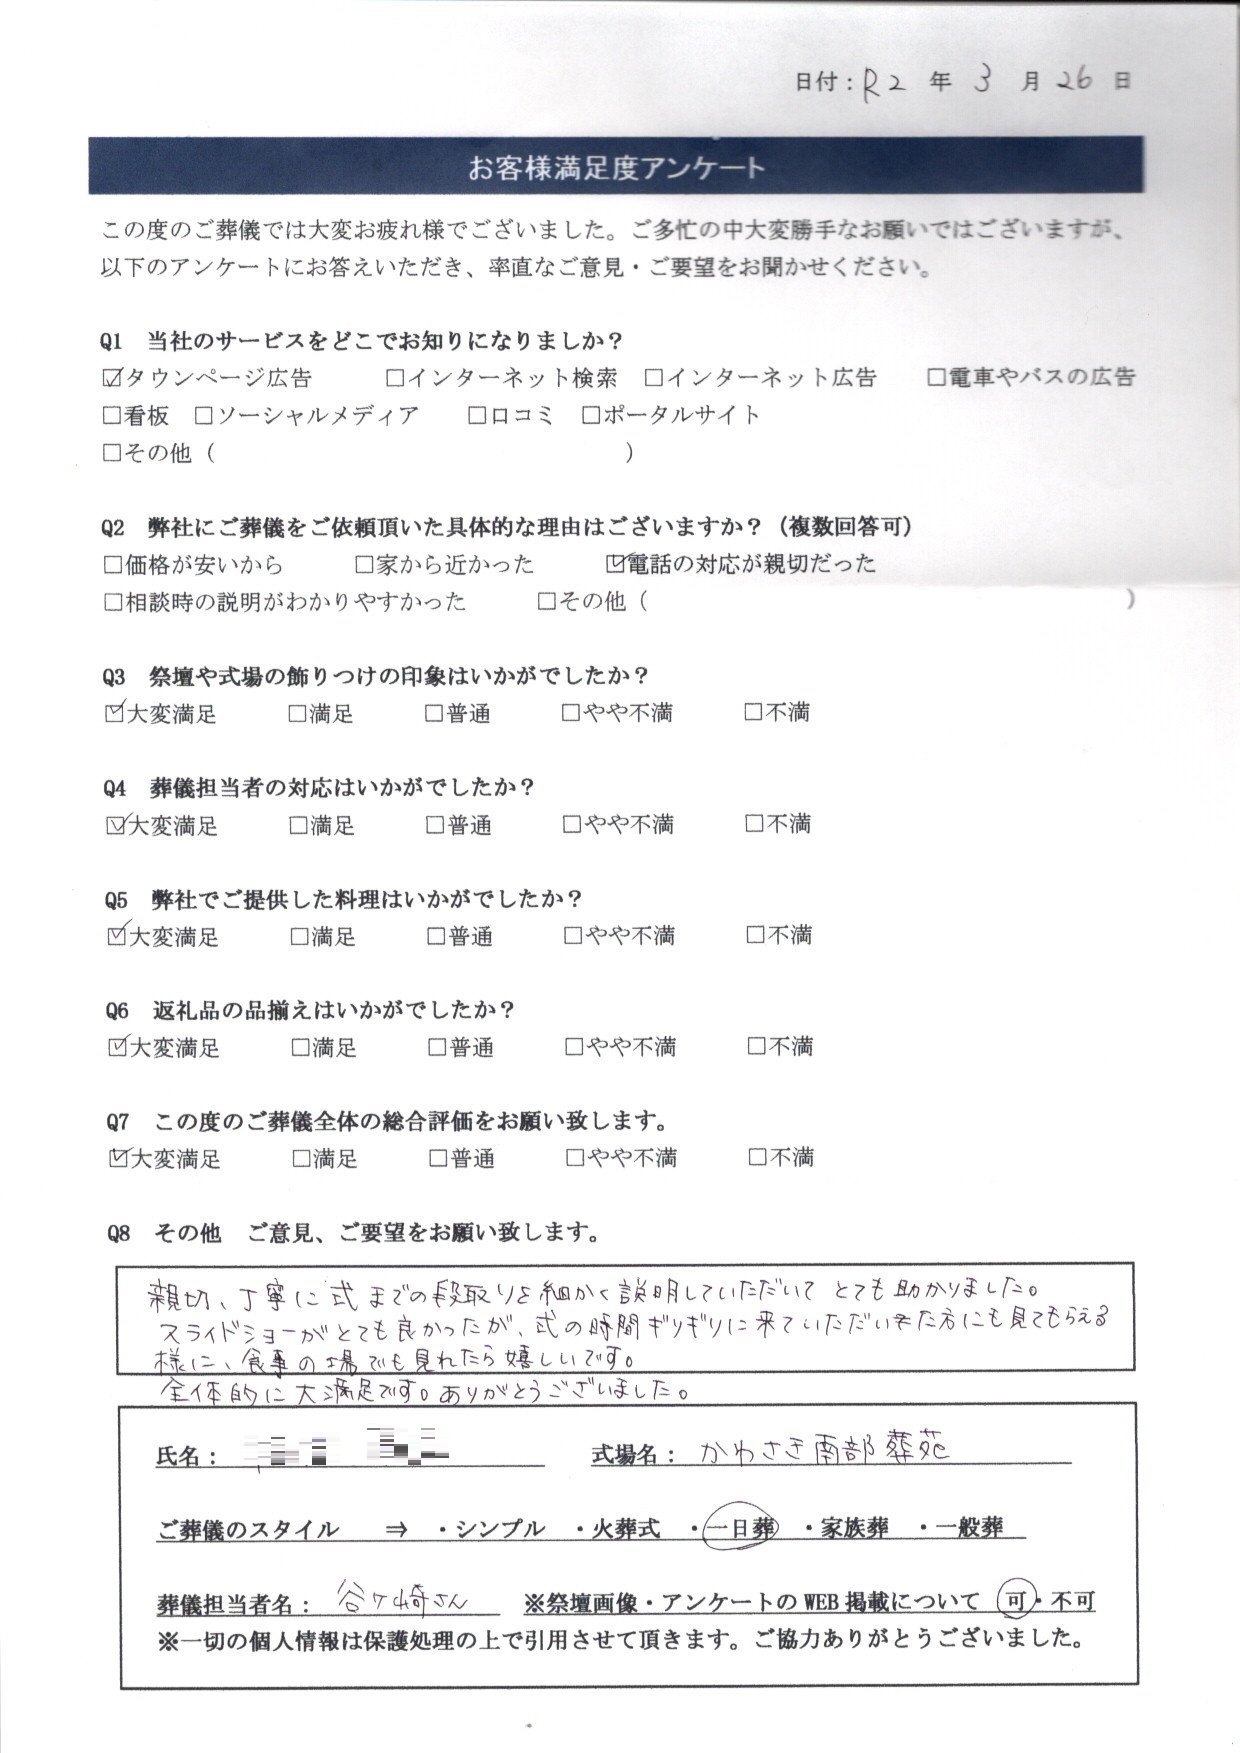 日付：R2 年 3 月 26 日
お客様満足度アンケート
この度のご葬儀では大変お疲れ様でございました。ご多忙の中大変勝手なお願いではございますが、
以下のアンケートにお答えいただき、率直なご意見・ご要望をお聞かせください。
Q1 当社のサービスをどこでお知りになりましか？
☑タウンページ広告 □インターネット検索 □インターネット広告 □電車やバスの広告
□看板 □ソーシャルメディア □口コミ □ポータルサイト
□その他（ ）
Q2 弊社にご葬儀をご依頼頂いた具体的な理由はございますか？（複数回答可）
□価格が安いから □家から近かった ☑電話の対応が親切だった
□相談時の説明がわかりやすかった □その他（ ）
Q3 祭壇や式場の飾りつけの印象はいかがでしたか？
☑大変満足 □満足 □普通 □やや不満 □不満
Q4 葬儀担当者の対応はいかがでしたか？
☑大変満足 □満足 □普通 □やや不満 □不満
Q5 弊社でご提供した料理はいかがでしたか？
☑大変満足 □満足 □普通 □やや不満 □不満
Q6 返礼品の品揃えはいかがでしたか？
☑大変満足 □満足 □普通 □やや不満 □不満
Q7 この度のご葬儀全体の総合評価をお願い致します。
☑大変満足 □満足 □普通 □やや不満 □不満
Q8 その他 ご意見、ご要望をお願い致します。
親切、丁寧に式までの段取りを細かく説明していただいてとても助かりました。
スライドショーがとても良かったが、式の時間ギリギリに来ていただいた方にも見てもらえる
様に、食事の場でも見れたら嬉しいです。
全体的に大満足です。ありがとうございました。
氏名： 式場名：かわさき南部葬苑
ご葬儀のスタイル ⇒ ・シンプル ・火葬式 ・一日葬 ・家族葬 ・一般葬
葬儀担当者名：谷ヶ崎さん ※祭壇画像・アンケートのWEB掲載について 可・不可
※一切の個人情報は保護処理の上で引用させて頂きます。ご協力ありがとうございました。